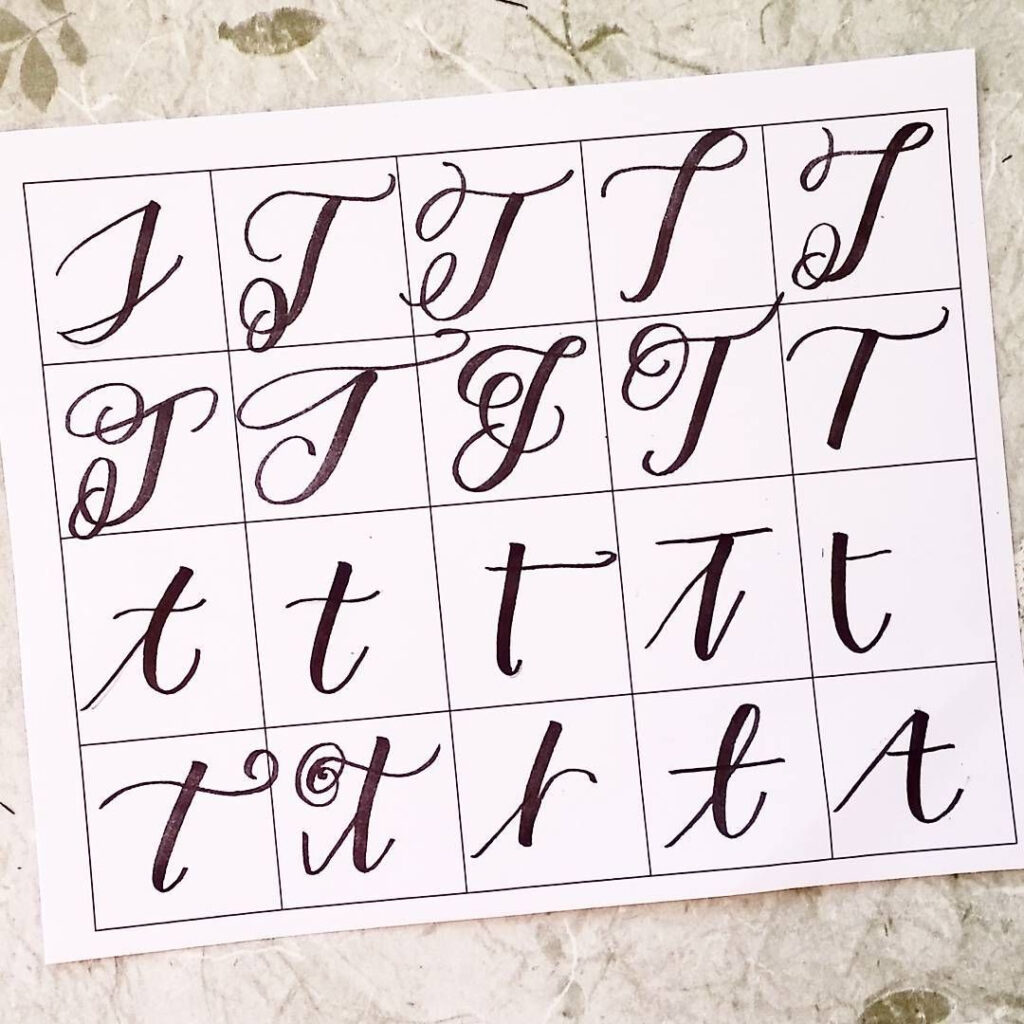 T T T T T
T T T T T
t t t t t
t t t t t